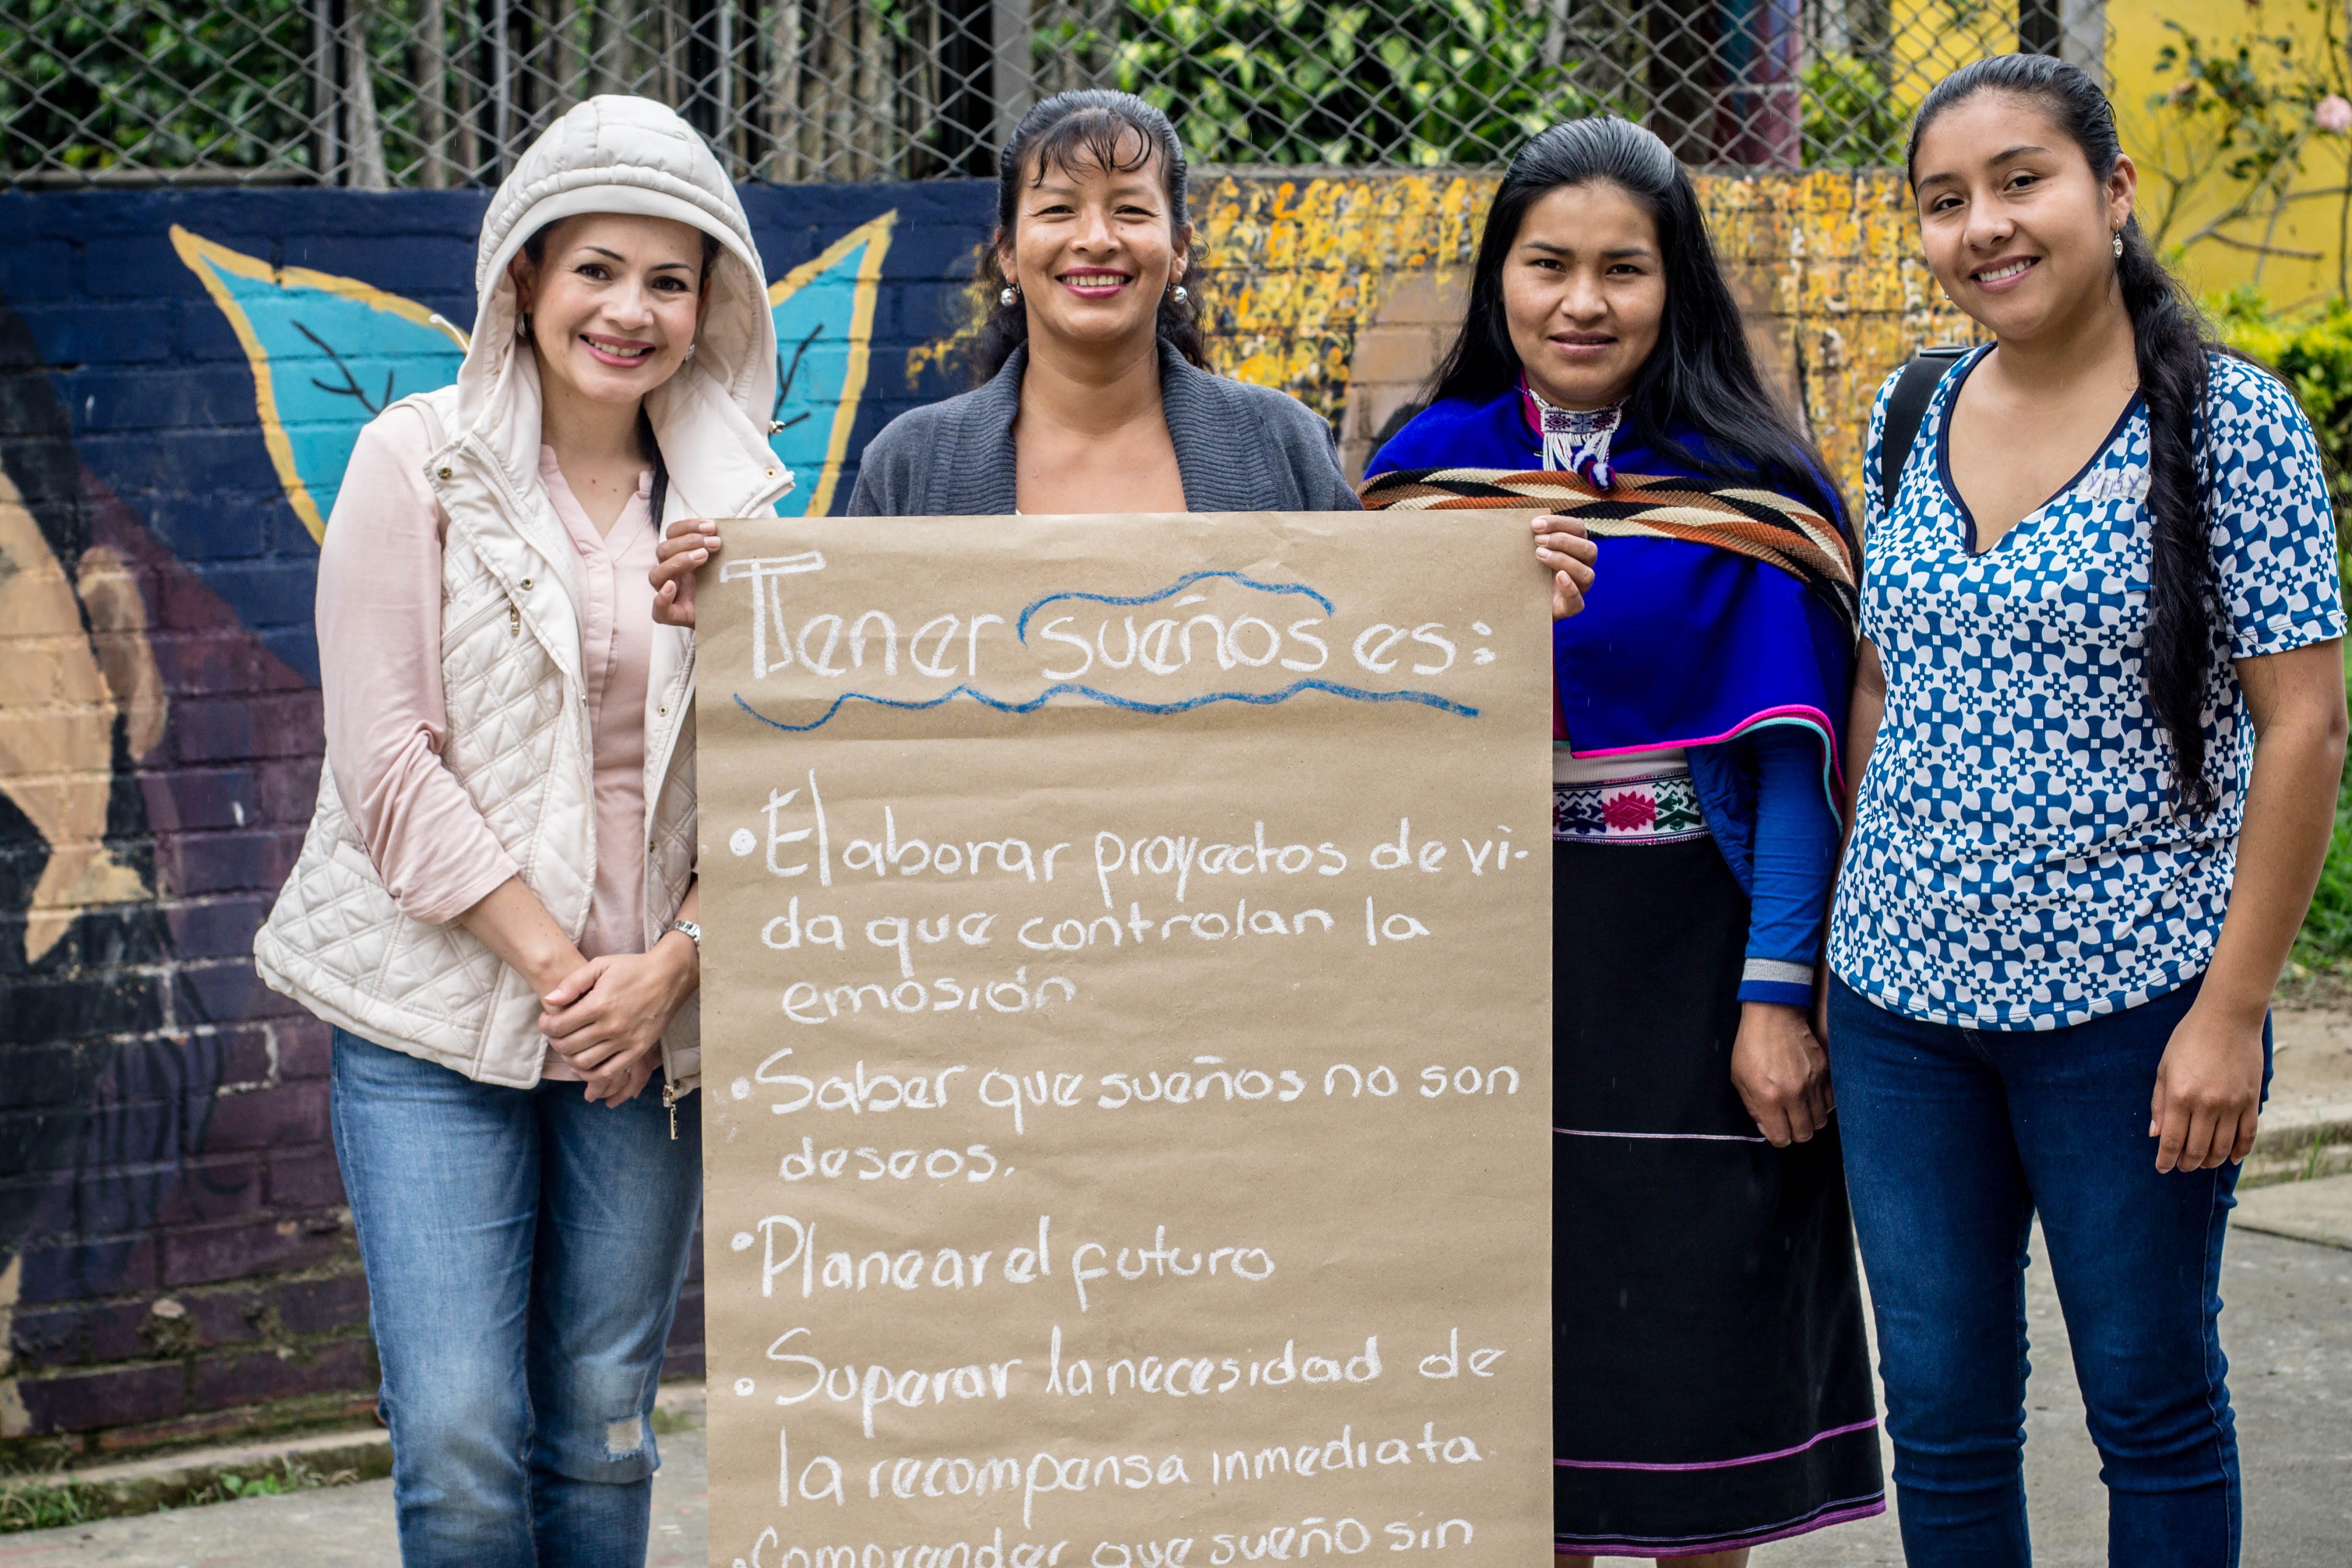 Tener sueños es:
• Elaborar proyectos de vi-
da que controlan la
emosión
• Saber que sueños no son
deseos.
• Planear el futuro
• Superar la necesidad de
la recompensa inmediata
• Comprender que sueño sin